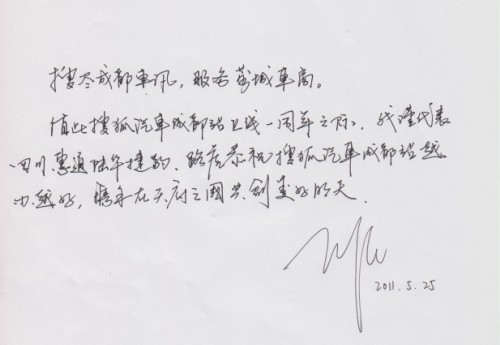 搜尽成都车讯，服务蓉城车商。
值此搜狐汽车成都站上线一周年之际，我谨代表
四川惠通陆华捷豹、路虎恭祝搜狐汽车成都站越
办越好，携手在天府之國共创美好明天
2011.5.25